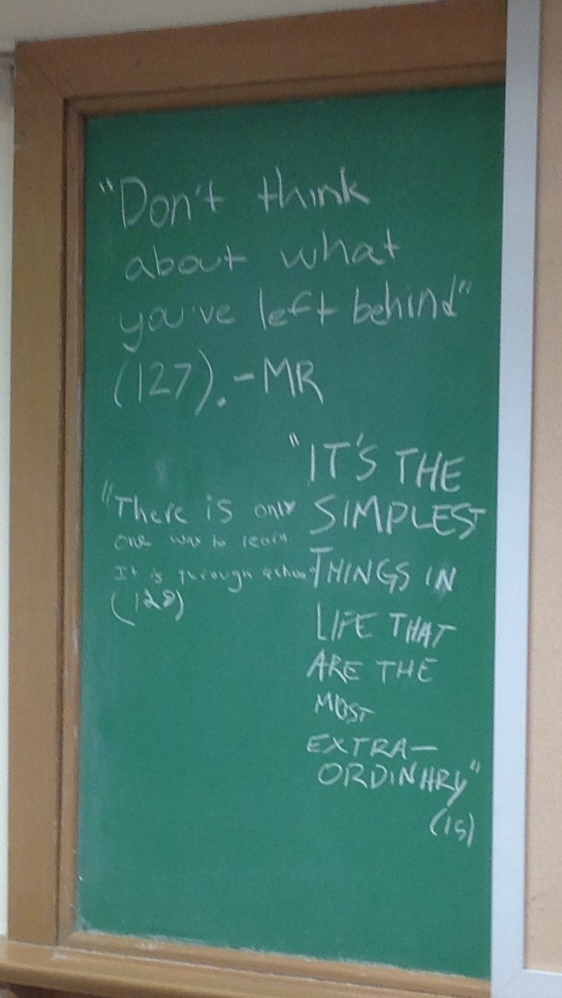 "Don't think
about what
you've left behind"
(127).-MR
"There is only
one way to learn
It is through action
(128)
"IT'S THE
SIMPLEST
THINGS IN
LIFE THAT
ARE THE
MOST
EXTRA-
ORDINARY"
(15)